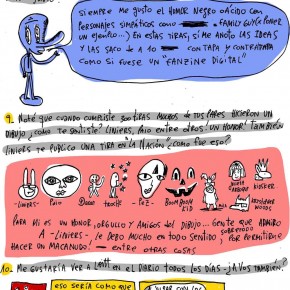 SIEMPRE ME GUSTO EL HUMOR NEGRO O ÁCIDO CON
PERSONAJES SIMPÁTICOS COMO FAMILY GUY (X PONER
UN EJEMPLO...) EN ESTAS TIRAS, SI ME ANOTO LAS IDEAS
Y LAS SACO DE A 10 CON TAPA Y CONTRATAPA
COMO SI FUESE UN "FANZINE DIGITAL"
9. NOTÉ QUE CUANDO CUMPLISTE 300 TIRAS MUCHOS DE TUS PARES HICIERON UN
DIBUJO ¿COMO TE SENTISTE? LINIERS, ENTRE OTROS! UN HONOR! TAMBIÉN
LINIERS TE PUBLICO UNA TIRA EN LA "NACIÓN" ¿COMO FUE ESO?
-LINIERS-
BOOM BOOM
KID
KIOSKER
PARA MI ES UN HONOR, ORGULLO Y AMIGOS DEL DIBUJO... GENTE QUE ADMIRO
A -LINIERS- LE DEBO MUCHO EN TODO SENTIDO, SOBRETODO POR PERMITIRME
HACER UN MACANUDO! ENTRE OTRAS COSAS
10. ME GUSTARÍA VER A EN EL DIARIO TODOS LOS DÍAS - ¿A VOS TAMBIÉN?
ESO SERÍA COMO QUE